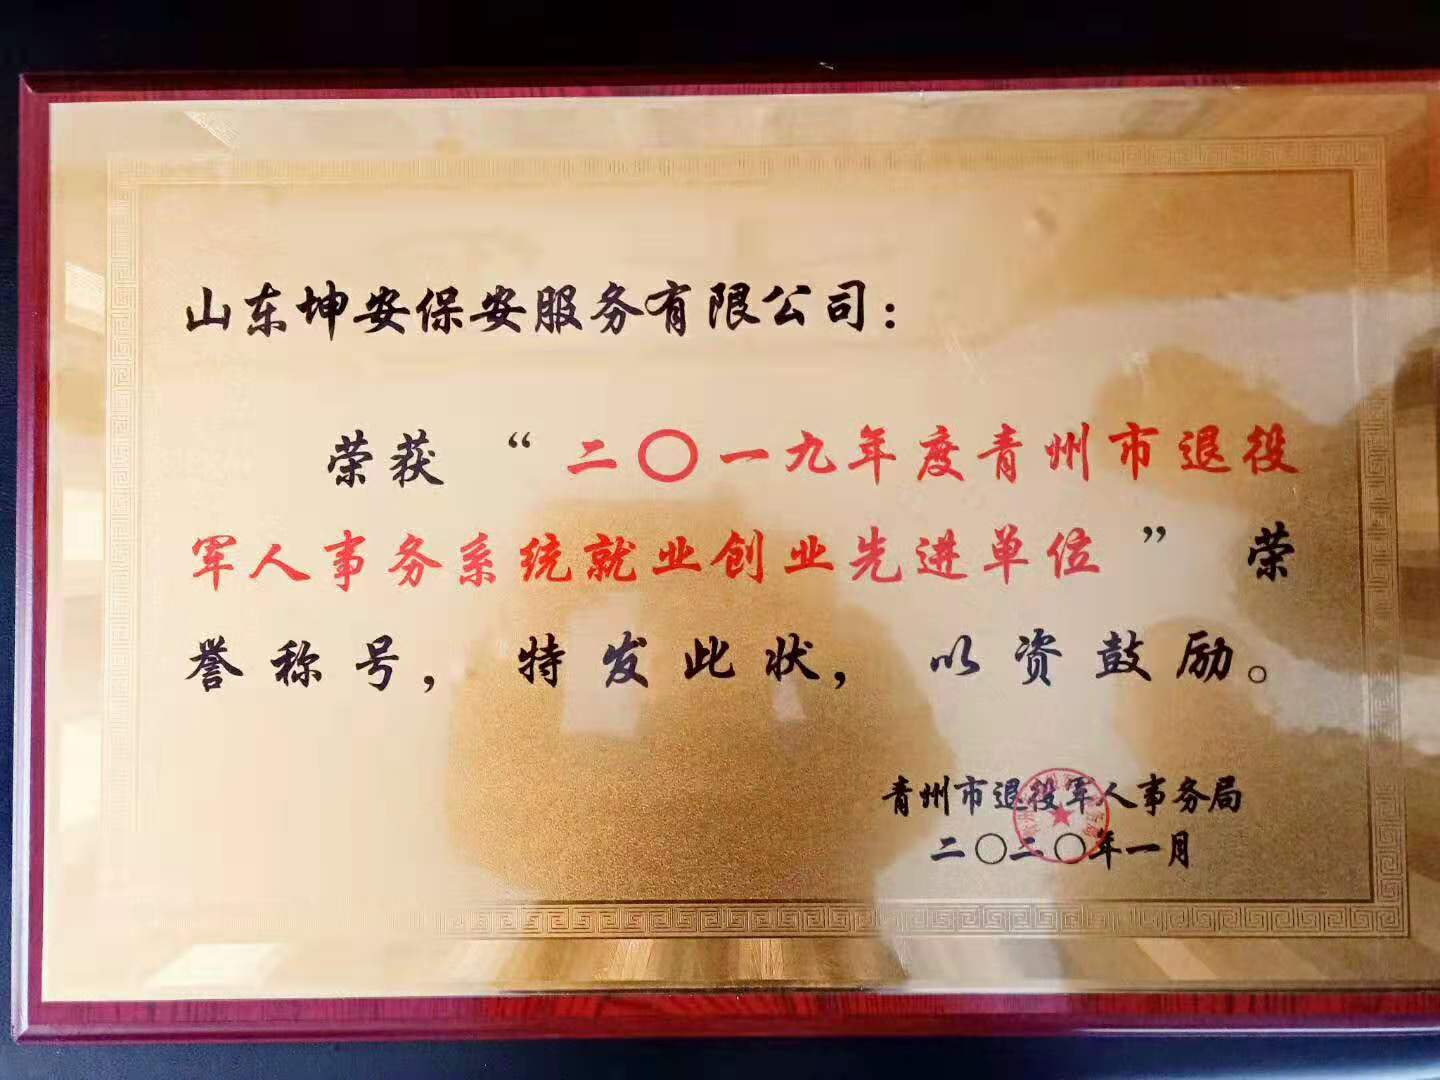 山东坤安保安服务有限公司：
荣获“二〇一九年度青州市退役
军人事务系统就业创业先进单位”荣
誉称号，特发此状，以资鼓励。
青州市退役军人事务局
二〇二〇年一月